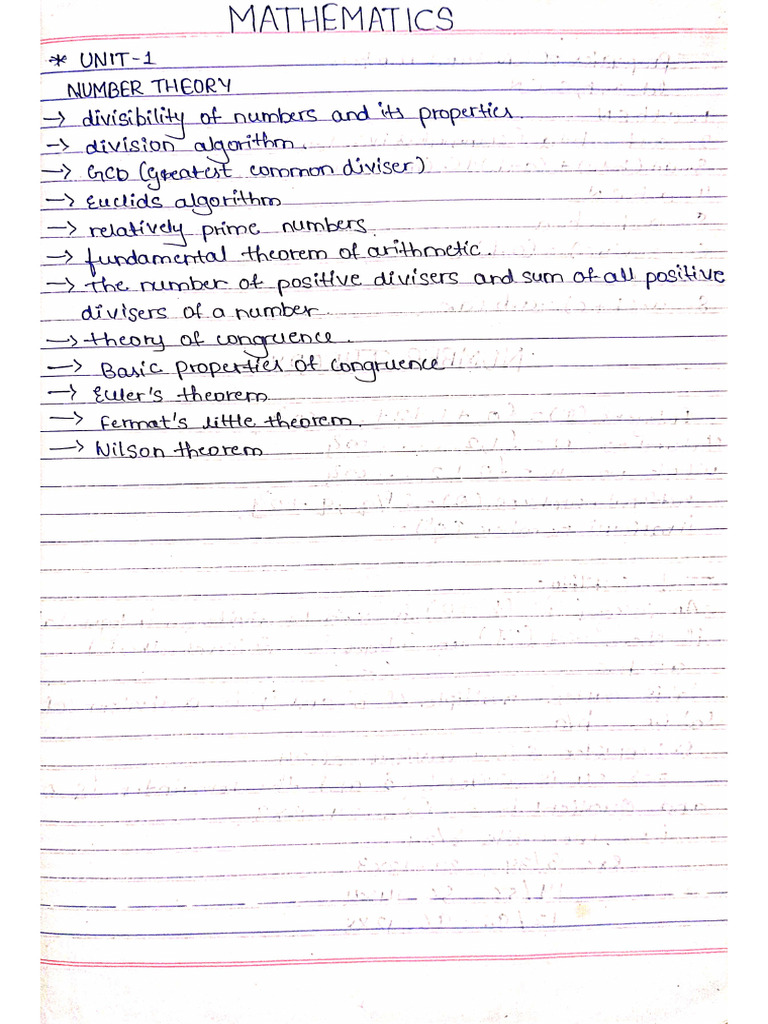 MATHEMATICS
* UNIT-1
NUMBER THEORY
→ divisibility of numbers and its properties.
→ division algorithm.
→ GCD (Greatest common diviser)
→ Euclids algorithm
→ relatively prime numbers.
→ fundamental theorem of arithmetic.
→ the number of positive divisers and sum of all positive
divisers of a number.
→ theory of congruence.
→ Basic properties of congruence
→ Euler's theorem
→ Fermat's little theorem.
→ Wilson theorem